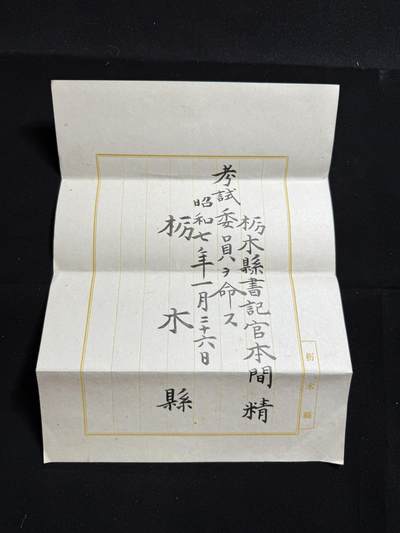 栃木縣書記官本間精
考試委員ヲ命ス
昭和七年一月二十六日
栃木縣
栃木縣